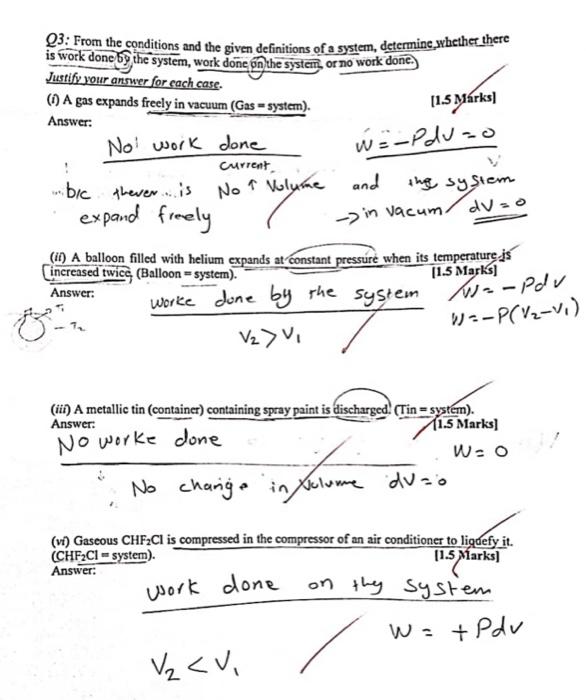 Q3: From the conditions and the given definitions of a system, determine whether there
is work done by the system, work done on the system, or no work done.
Justify your answer for each case.
(i) A gas expands freely in vacuum (Gas = system). [1.5 Marks]
Answer:
No work done W = -Pdv = 0
current
b/c is No ↑ Volume and the system
expand freely → in vacum dV = 0
(ii) A balloon filled with helium expands at constant pressure when its temperature is
increased twice, (Balloon = system). [1.5 Marks]
Answer:
worke done by the system W = -Pdv
T₁
T₂
V₂ > V₁ W = -P(V₂-V₁)
(iii) A metallic tin (container) containing spray paint is discharged. (Tin = system).
Answer: [1.5 Marks]
No worke done W = 0
No change in Volume dV = 0
(vi) Gaseous CHF₂Cl is compressed in the compressor of an air conditioner to liqdefy it.
(CHF₂Cl = system). [1.5 Marks]
Answer:
work done on thy system
W = + Pdv
V₂ < V₁